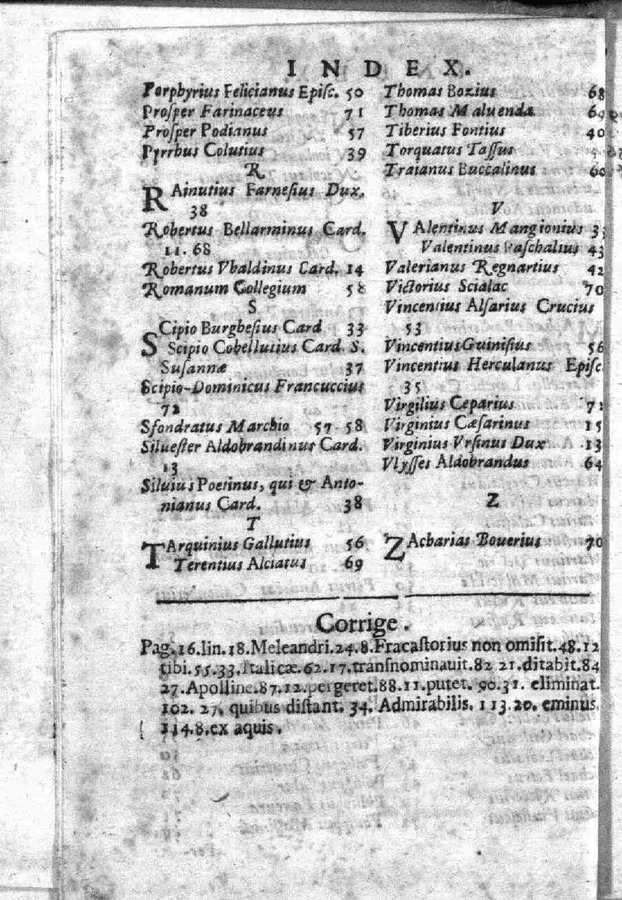 INDEX.
Porphyrius Felicianus Episc. 50
Prosper Farinaceus 71
Prosper Podianus 57
Pyrrhus Colutius 39
R
RAinutius Farnesius Dux.
38
Robertus Bellarminus Card.
11. 68
Robertus Vbaldinus Card. 14
Romanum Collegium 58
S
SCipio Burghesius Card 33
Scipio Cobellutius Card. S.
Susannæ 37
Scipio-Dominicus Francuccius
72
Sfondratus Marchio 57 58
Siluester Aldobrandinus Card.
13
Siluius Poetinus, qui & Anto-
nianus Card. 38
T
TArquinius Gallutius 56
Terentius Alciatus 69
Thomas Bozius 68
Thomas Maluenda 69
Tiberius Fontius 40
Torquatus Tassus
Traianus Buccalinus 60
V
VAlentinus Mangionius
Valentinus Paschalius 43
Valerianus Regnartius 42
Victorius Scialac 70
Vincentius Alsarius Crucius
53
Vincentius Guinisius 56
Vincentius Herculanus Episc
35
Virgilius Ceparius 71
Virginius Cæsarinus 15
Virginius Vrsinus Dux 13
Vlysses Aldobrandus 64
Z
ZAcharias Bouerius 70
Corrige.
Pag.16.lin.18.Meleandri.24.8.Fracastorius non omisit.48.12
tibi.55.33.Italicæ.62.17.transnominauit.82 21.ditabit.84
27.Apolline.87.12.pergeret.88.11.putet. 90.31. eliminat.
102. 27. quibus distant. 34. Admirabilis. 113.20. eminus.
114.8.ex aquis.